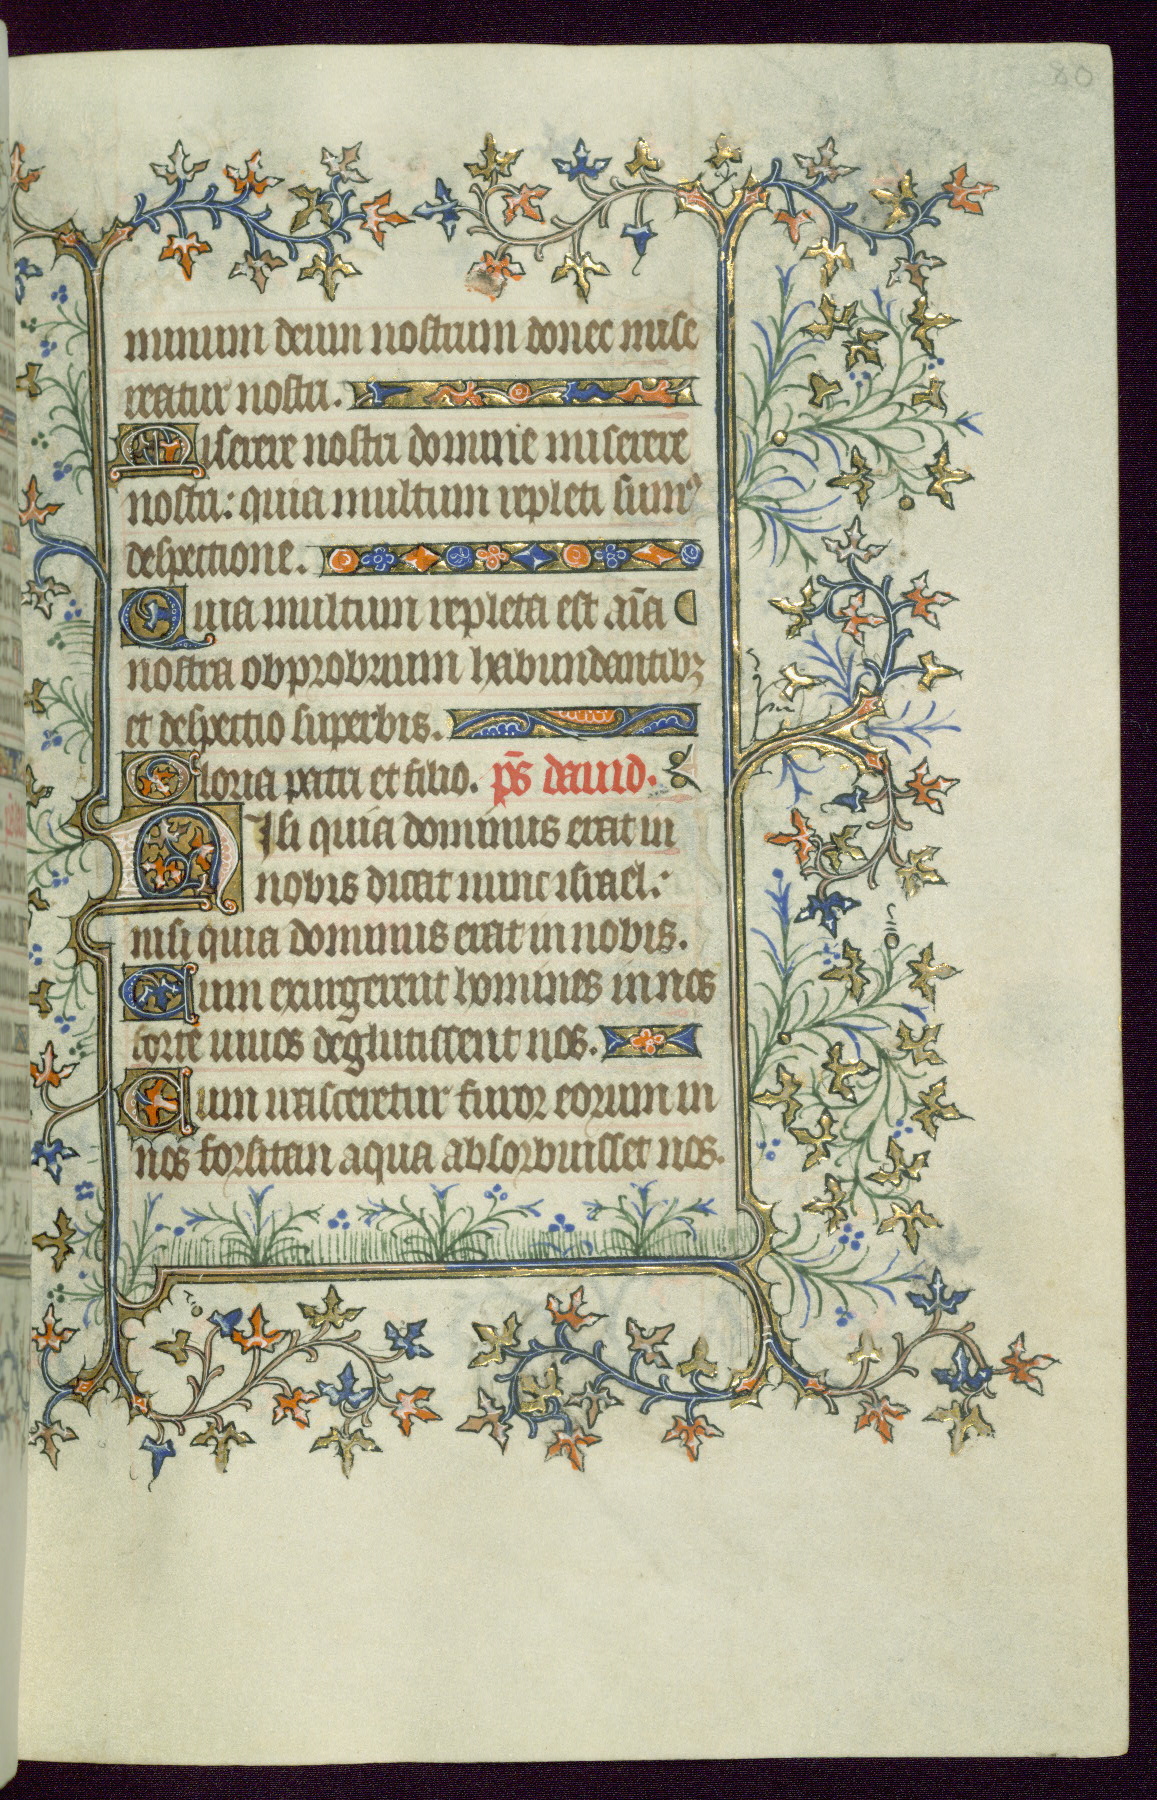 80
minum deum nostrum donec mise
reatur nostri.
Miserere nostri domine miserere
nostri: quia multum repleti sumꝰ
despectione.
Quia multum repleta est aīa
nostra obprobrium habundantibꝫ
et despectio superbis.
Gloria patri et filio. ps̄ dauid.
Nisi quia dominus erat in
nobis dicat nunc israel:
nisi quia dominus erat in nobis.
Cum exurgerent homines in nos
forte uiuos deglutissent nos.
Cum irasceretur furor eorum in
nos forsitan aqua absorbuisset nos.